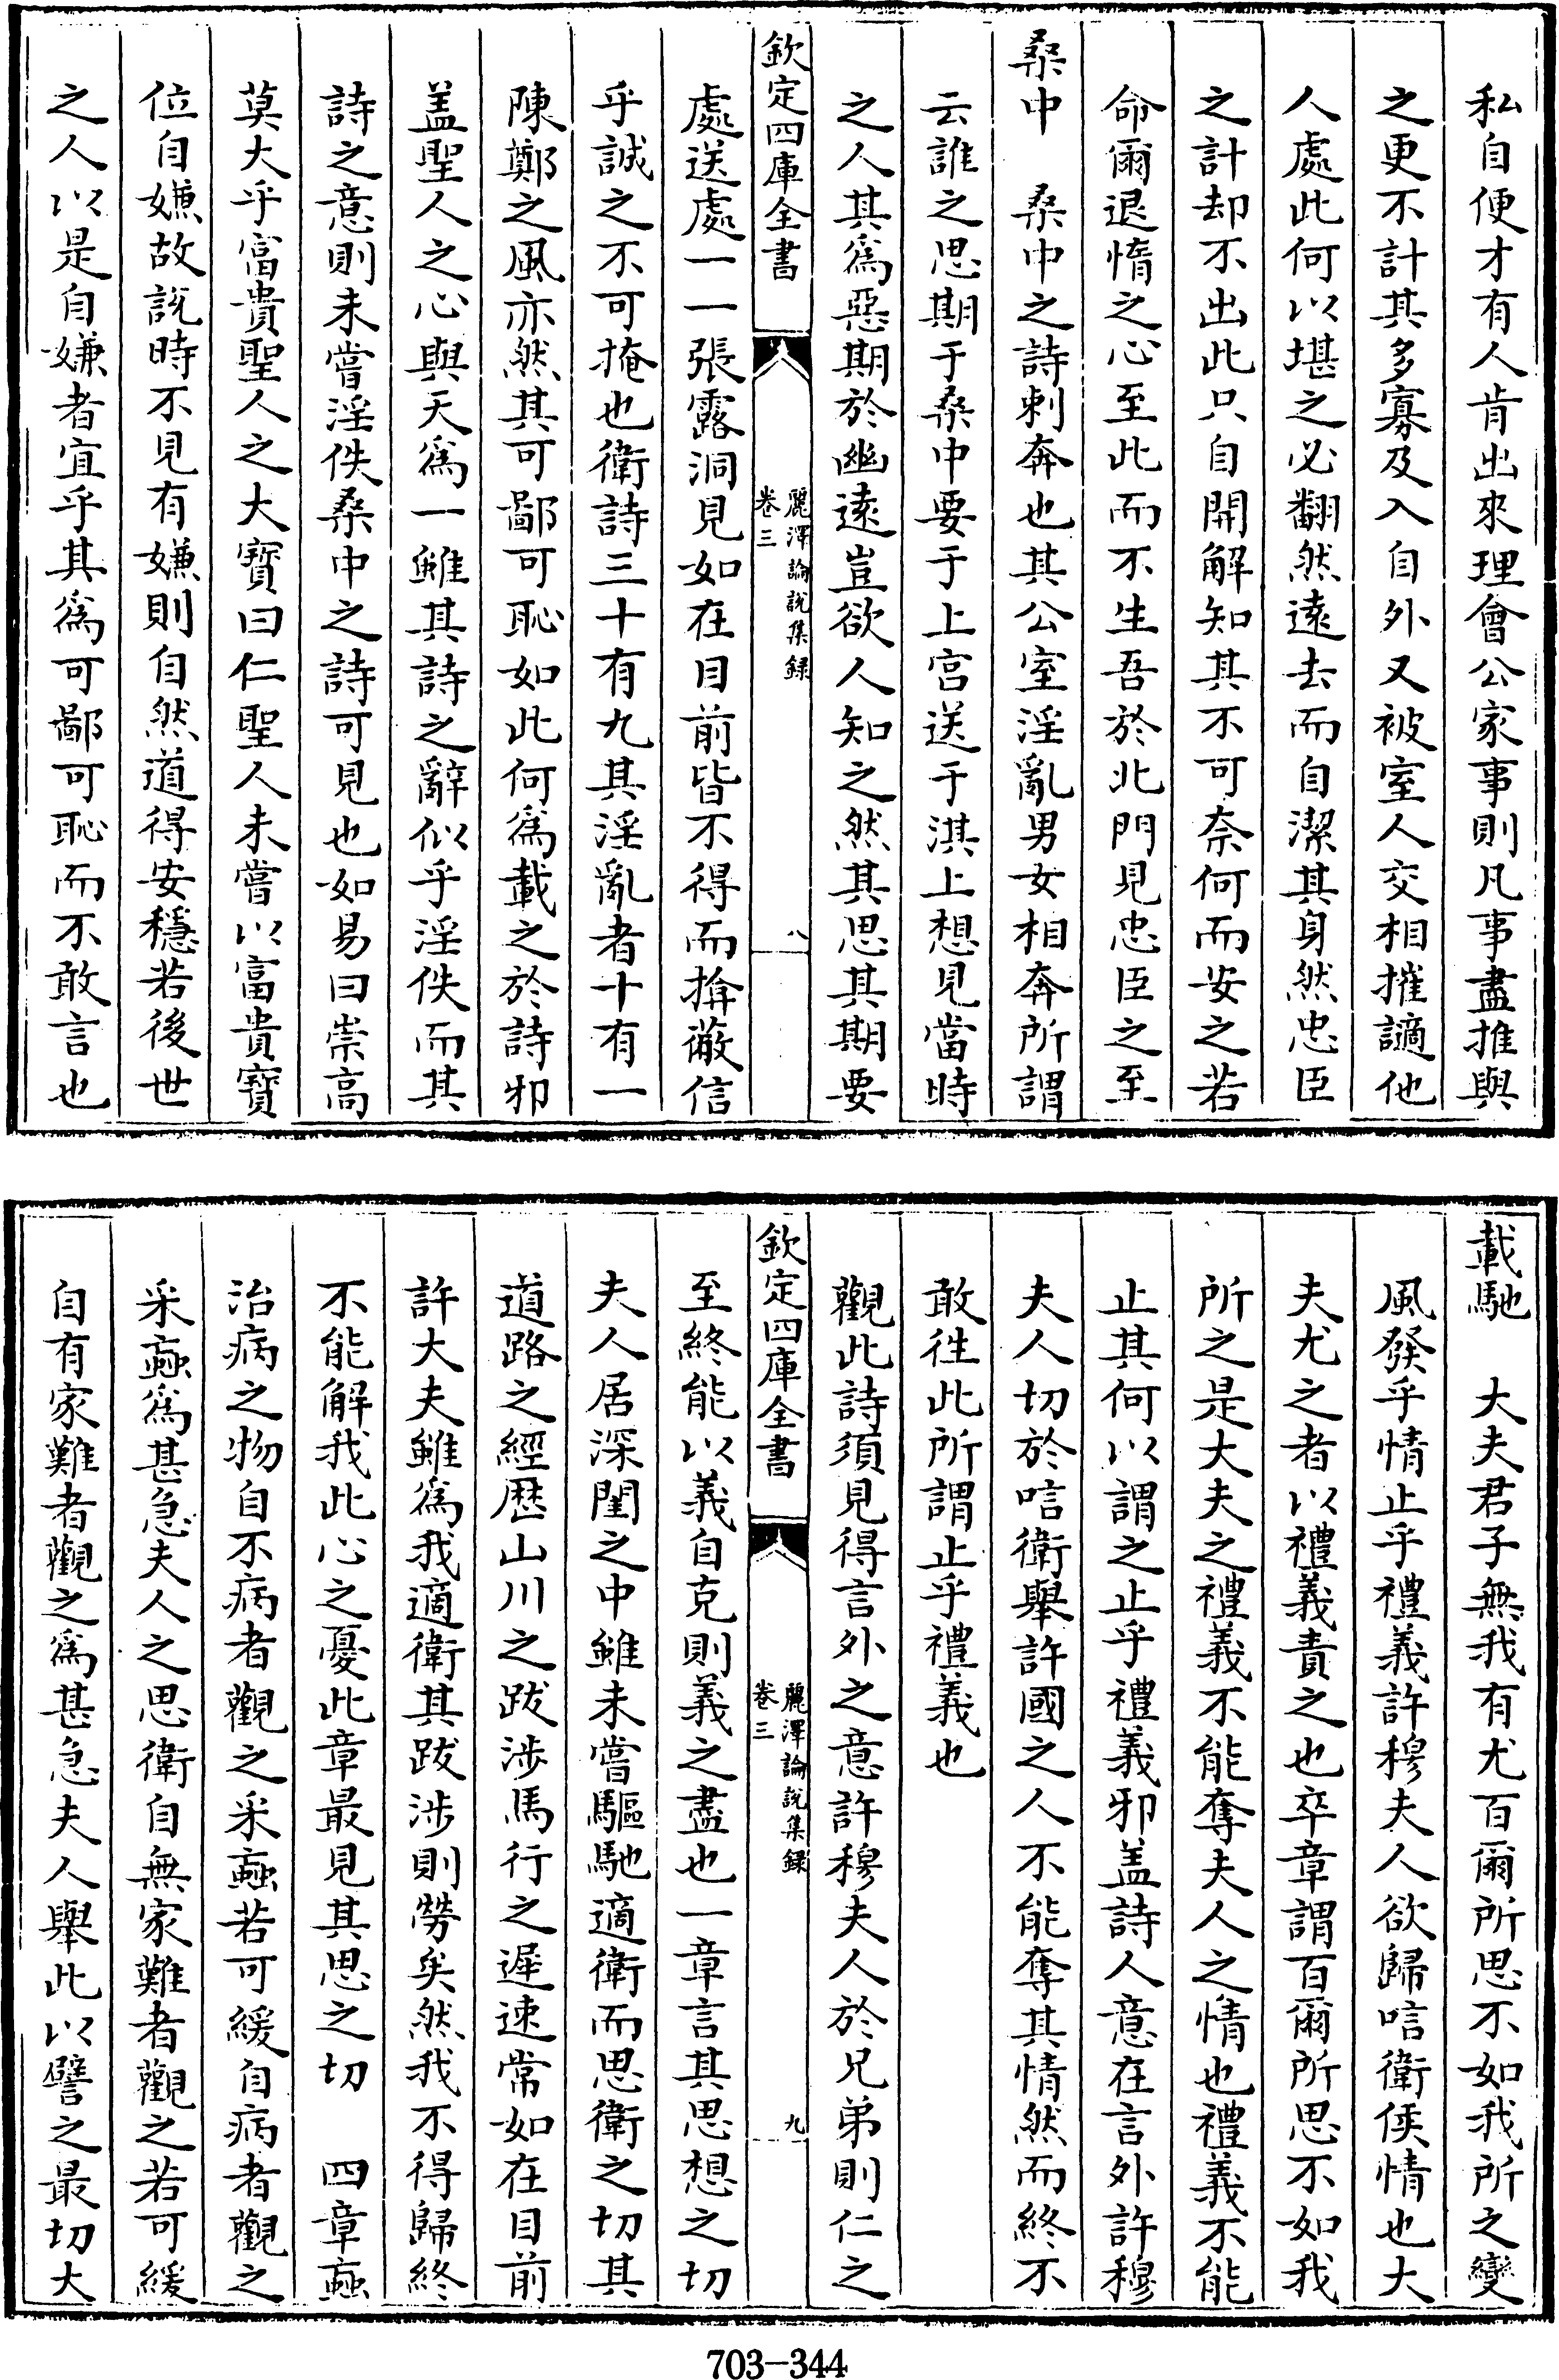 私自便才有人肯出來理會公家事則凡事盡推與
之更不計其多寡及入自外又被室人交相摧讁他
人處此何以堪之必翻然遠去而自潔其身然忠臣
之計却不出此只自開解知其不可奈何而安之若
命爾退惰之心至此而不生吾於北門見忠臣之至
桑中　桑中之詩刺奔也其公室淫亂男女相奔所謂
云誰之思期于桑中要于上宫送于淇上想見當時
之人其爲惡期於幽遠豈欲人知之然其思其期要
欽定四庫全書
麗澤論説集録
卷三
八
處送處一一張露洞見如在目前皆不得而揜蔽信
乎誠之不可掩也衛詩三十有九其淫亂者十有一
陳鄭之風亦然其可鄙可恥如此何爲載之於詩邪
盖聖人之心與天爲一雖其詩之辭似乎淫佚而其
詩之意則未嘗淫佚桑中之詩可見也如易曰崇高
莫大乎富貴聖人之大寳曰仁聖人未嘗以富貴寳
位自嫌故説時不見有嫌則自然道得安穩若後世
之人以是自嫌者宜乎其爲可鄙可恥而不敢言也
載馳　大夫君子無我有尤百爾所思不如我所之變
風發乎情止乎禮義許穆夫人欲歸唁衛侯情也大
夫尤之者以禮義責之也卒章謂百爾所思不如我
所之是大夫之禮義不能奪夫人之情也禮義不能
止其何以謂之止乎禮義邪盖詩人意在言外許穆
夫人切於唁衛舉許國之人不能奪其情然而終不
敢徃此所謂止乎禮義也
觀此詩須見得言外之意許穆夫人於兄弟則仁之
欽定四庫全書
麗澤論説集録
卷三
九
至終能以義自克則義之盡也一章言其思想之切
夫人居深閨之中雖未嘗驅馳適衛而思衛之切其
道路之經歴山川之跋涉馬行之遲速常如在目前
許大夫雖爲我適衛其跋涉則勞矣然我不得歸終
不能解我此心之憂此章最見其思之切　四章蝱
治病之物自不病者觀之采蝱若可緩自病者觀之
采蝱爲甚急夫人之思衛自無家難者觀之若可緩
自有家難者觀之爲甚急夫人舉此以譬之最切大
703-344